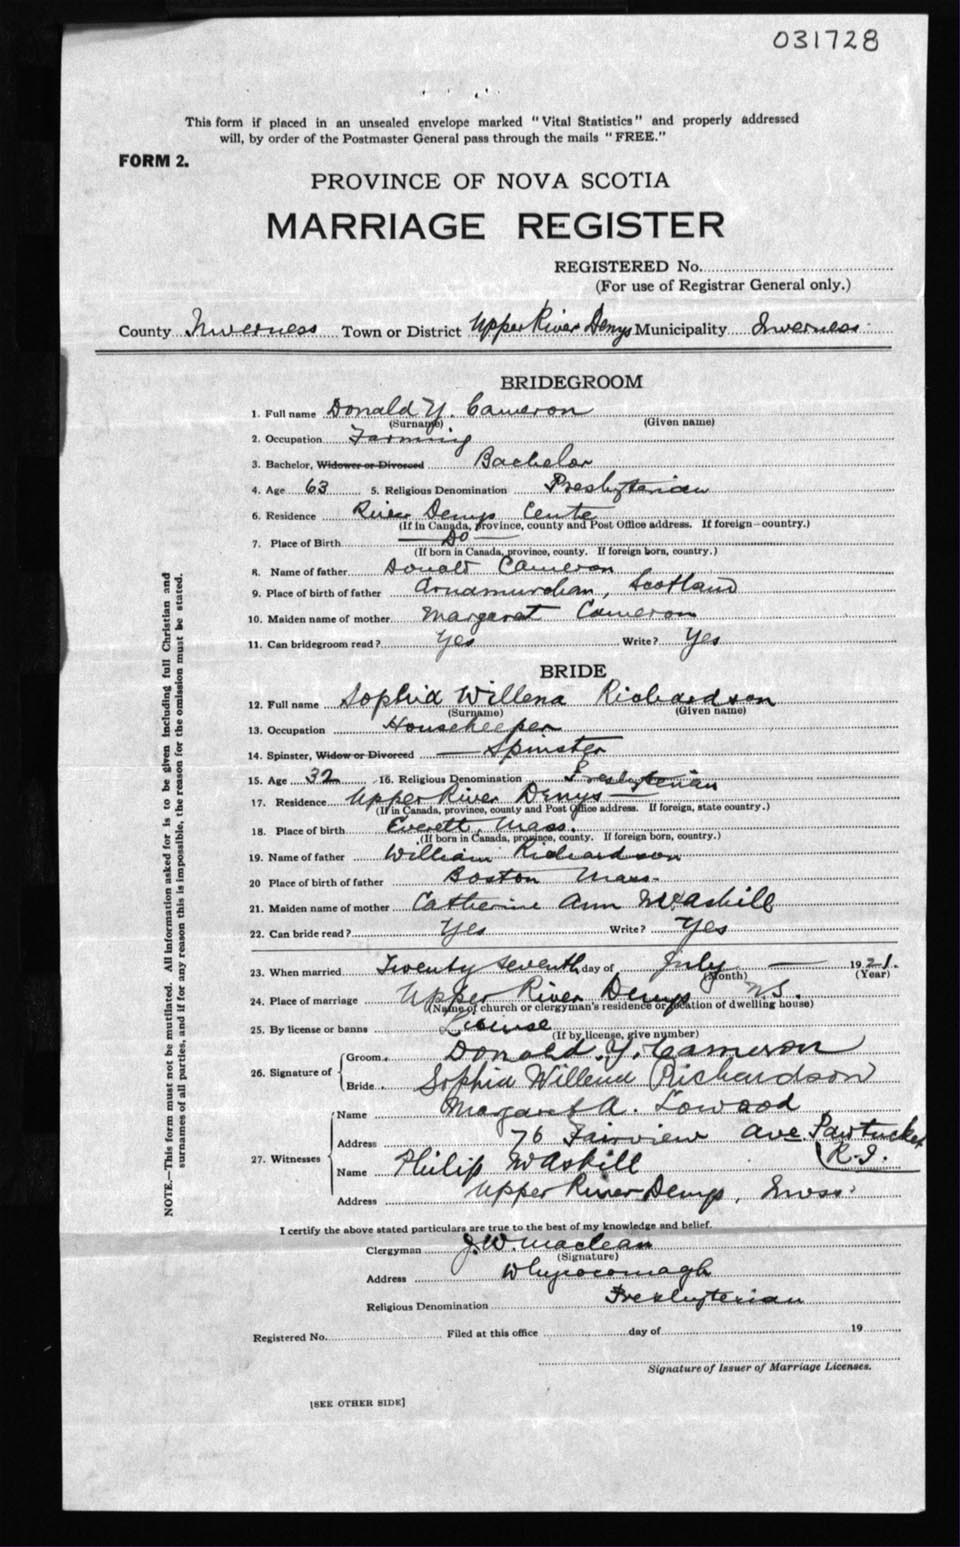 031728
This form if placed in an unsealed envelope marked "Vital Statistics" and properly addressed
will, by order of the Postmaster General pass through the mails "FREE."
FORM 2.
PROVINCE OF NOVA SCOTIA
MARRIAGE REGISTER
REGISTERED No.
(For use of Registrar General only.)
County Inverness Town or District Upper River Denys Municipality Inverness
BRIDEGROOM
1. Full name Donald Y. Cameron
(Surname) (Given name)
2. Occupation Farming
3. Bachelor, Widower or Divorced Bachelor
4. Age 63 5. Religious Denomination Presbyterian
6. Residence River Denys Centre
(If in Canada, province, county and Post Office address. If foreign—country.)
7. Place of Birth — Do —
(If born in Canada, province, county. If foreign born, country.)
8. Name of father Donald Cameron
9. Place of birth of father Ardnamurchan, Scotland
10. Maiden name of mother Margaret Cameron
11. Can bridegroom read? Yes Write? Yes
BRIDE
12. Full name Sophia Willena Richardson
(Surname) (Given name)
13. Occupation Housekeeper
14. Spinster, Widow or Divorced — Spinster
15. Age 32 16. Religious Denomination Presbyterian
17. Residence Upper River Denys —
(If in Canada, province, county and Post Office address. If foreign, state country.)
18. Place of birth Everett, Mass.
(If born in Canada, province, county. If foreign born, country.)
19. Name of father William Richardson
20 Place of birth of father Boston Mass.
21. Maiden name of mother Catherine Ann McAskill
22. Can bride read? Yes Write? Yes
23. When married Twenty seventh day of July — 1921.
(Month) (Year)
24. Place of marriage Upper River Denys N.S.
(Name of church or clergyman's residence or location of dwelling house)
25. By license or banns License
(If by license, give number)
26. Signature of Groom Donald. Y. Cameron
Bride Sophia Willena Richardson
27. Witnesses Name Margaret A. Lowood
Address 76 Fairview Ave Pawtucket
R.I.
Name Philip McAskill
Address Upper River Denys, Inverss
I certify the above stated particulars are true to the best of my knowledge and belief.
Clergyman J. W. Maclean
(Signature)
Address Whycocomagh
Religious Denomination Presbyterian
Registered No. Filed at this office day of 19
Signature of Issuer of Marriage Licenses.
[SEE OTHER SIDE]
NOTE.—This form must not be mutilated. All information asked for is to be given including full Christian and
surnames of all parties, and if for any reason this is impossible, the reason for the omission must be stated.